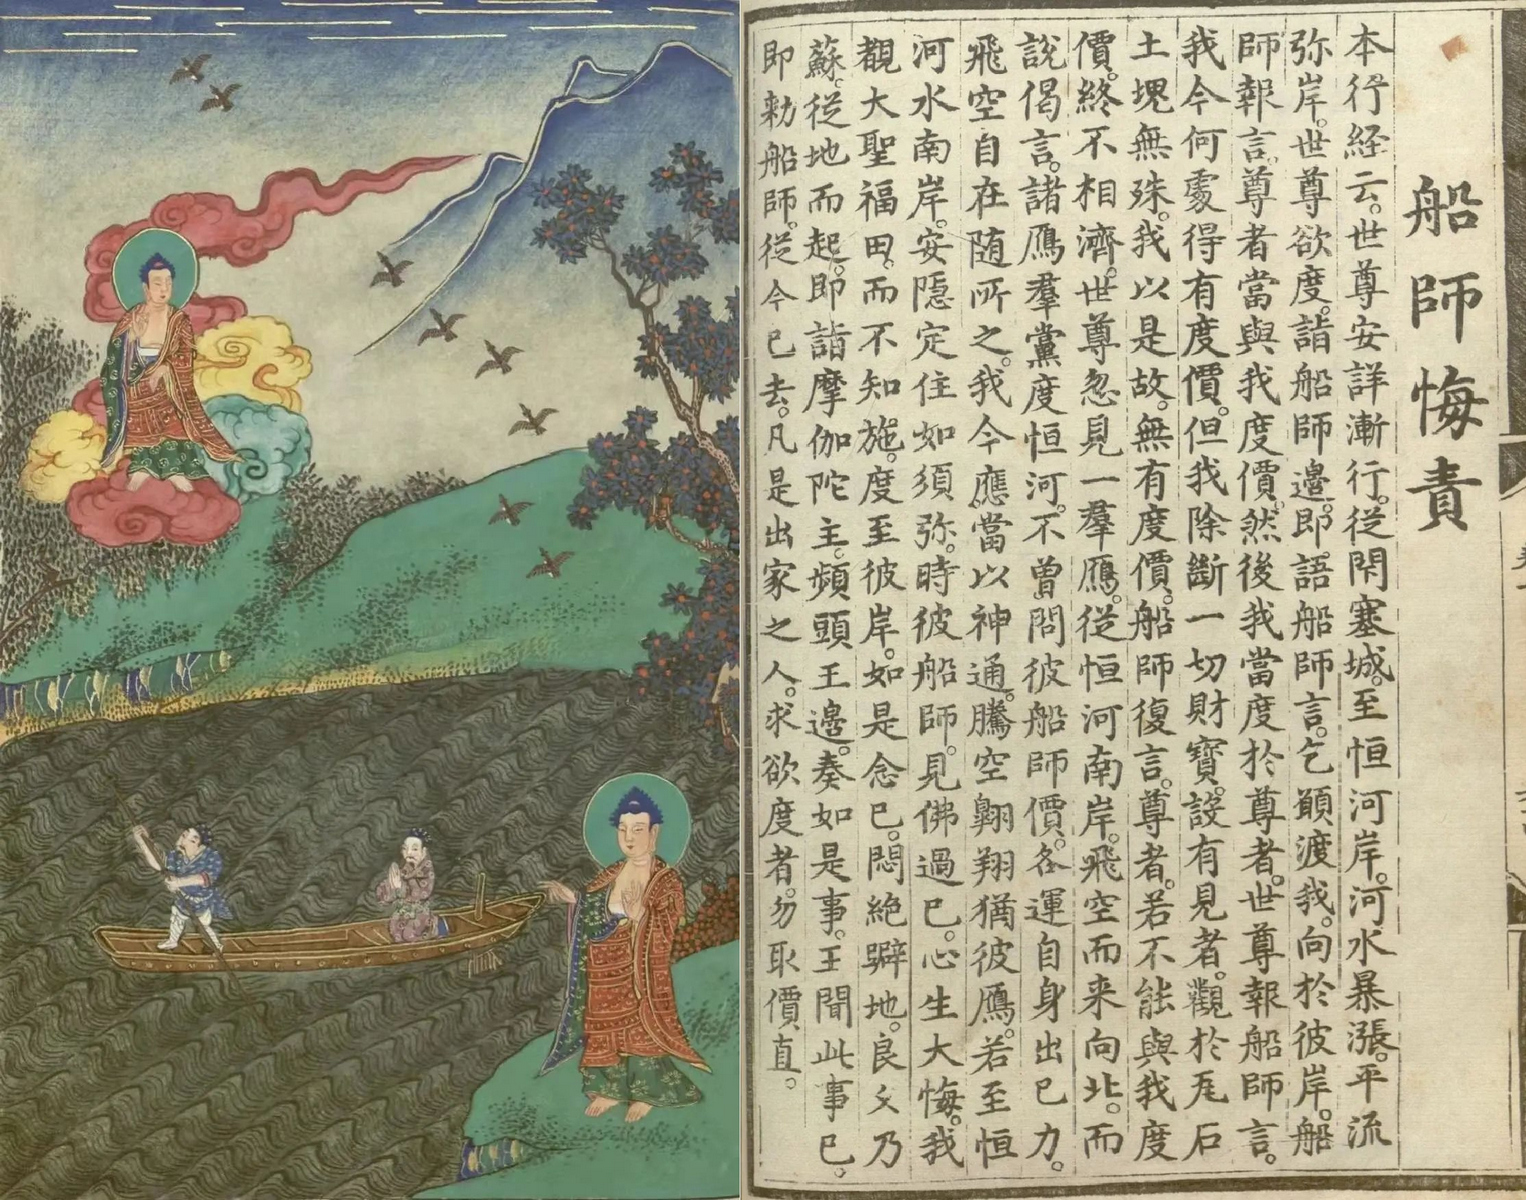 船師悔責
本行経云。世尊安詳漸行。從閑塞城。至恒河岸。河水暴漲。平流
弥岸。世尊欲度。詣船師邊。即語船師言。乞願渡我。向於彼岸。船
師報言。尊者當與我度價。然後我當度於尊者。世尊報船師言。
我今何處得有度價。但我除斷一切財寶。設有見者。觀於瓦石
土塊無殊。我以是故。無有度價。船師復言。尊者。若不能與我度
價。終不相濟。世尊忽見一羣鴈。從恒河南岸。飛空而来向北。而
說偈言。諸鴈羣黨度恒河。不曾問彼船師價。各運自身出已力。
飛空自在随所之。我今應當以神通。騰空翱翔猶彼鴈。若至恒
河水南岸。安隱定住如須弥。時彼船師。見佛過已。心生大悔。我
觀大聖福田。而不知施。度至彼岸。如是念已。悶絶躃地。良久乃
蘇。從地而起。即詣摩伽陀主。頻頭王邊。奏如是事。王聞此事已。
即勑船師。從今已去。凡是出家之人。求欲度者。勿取價直。